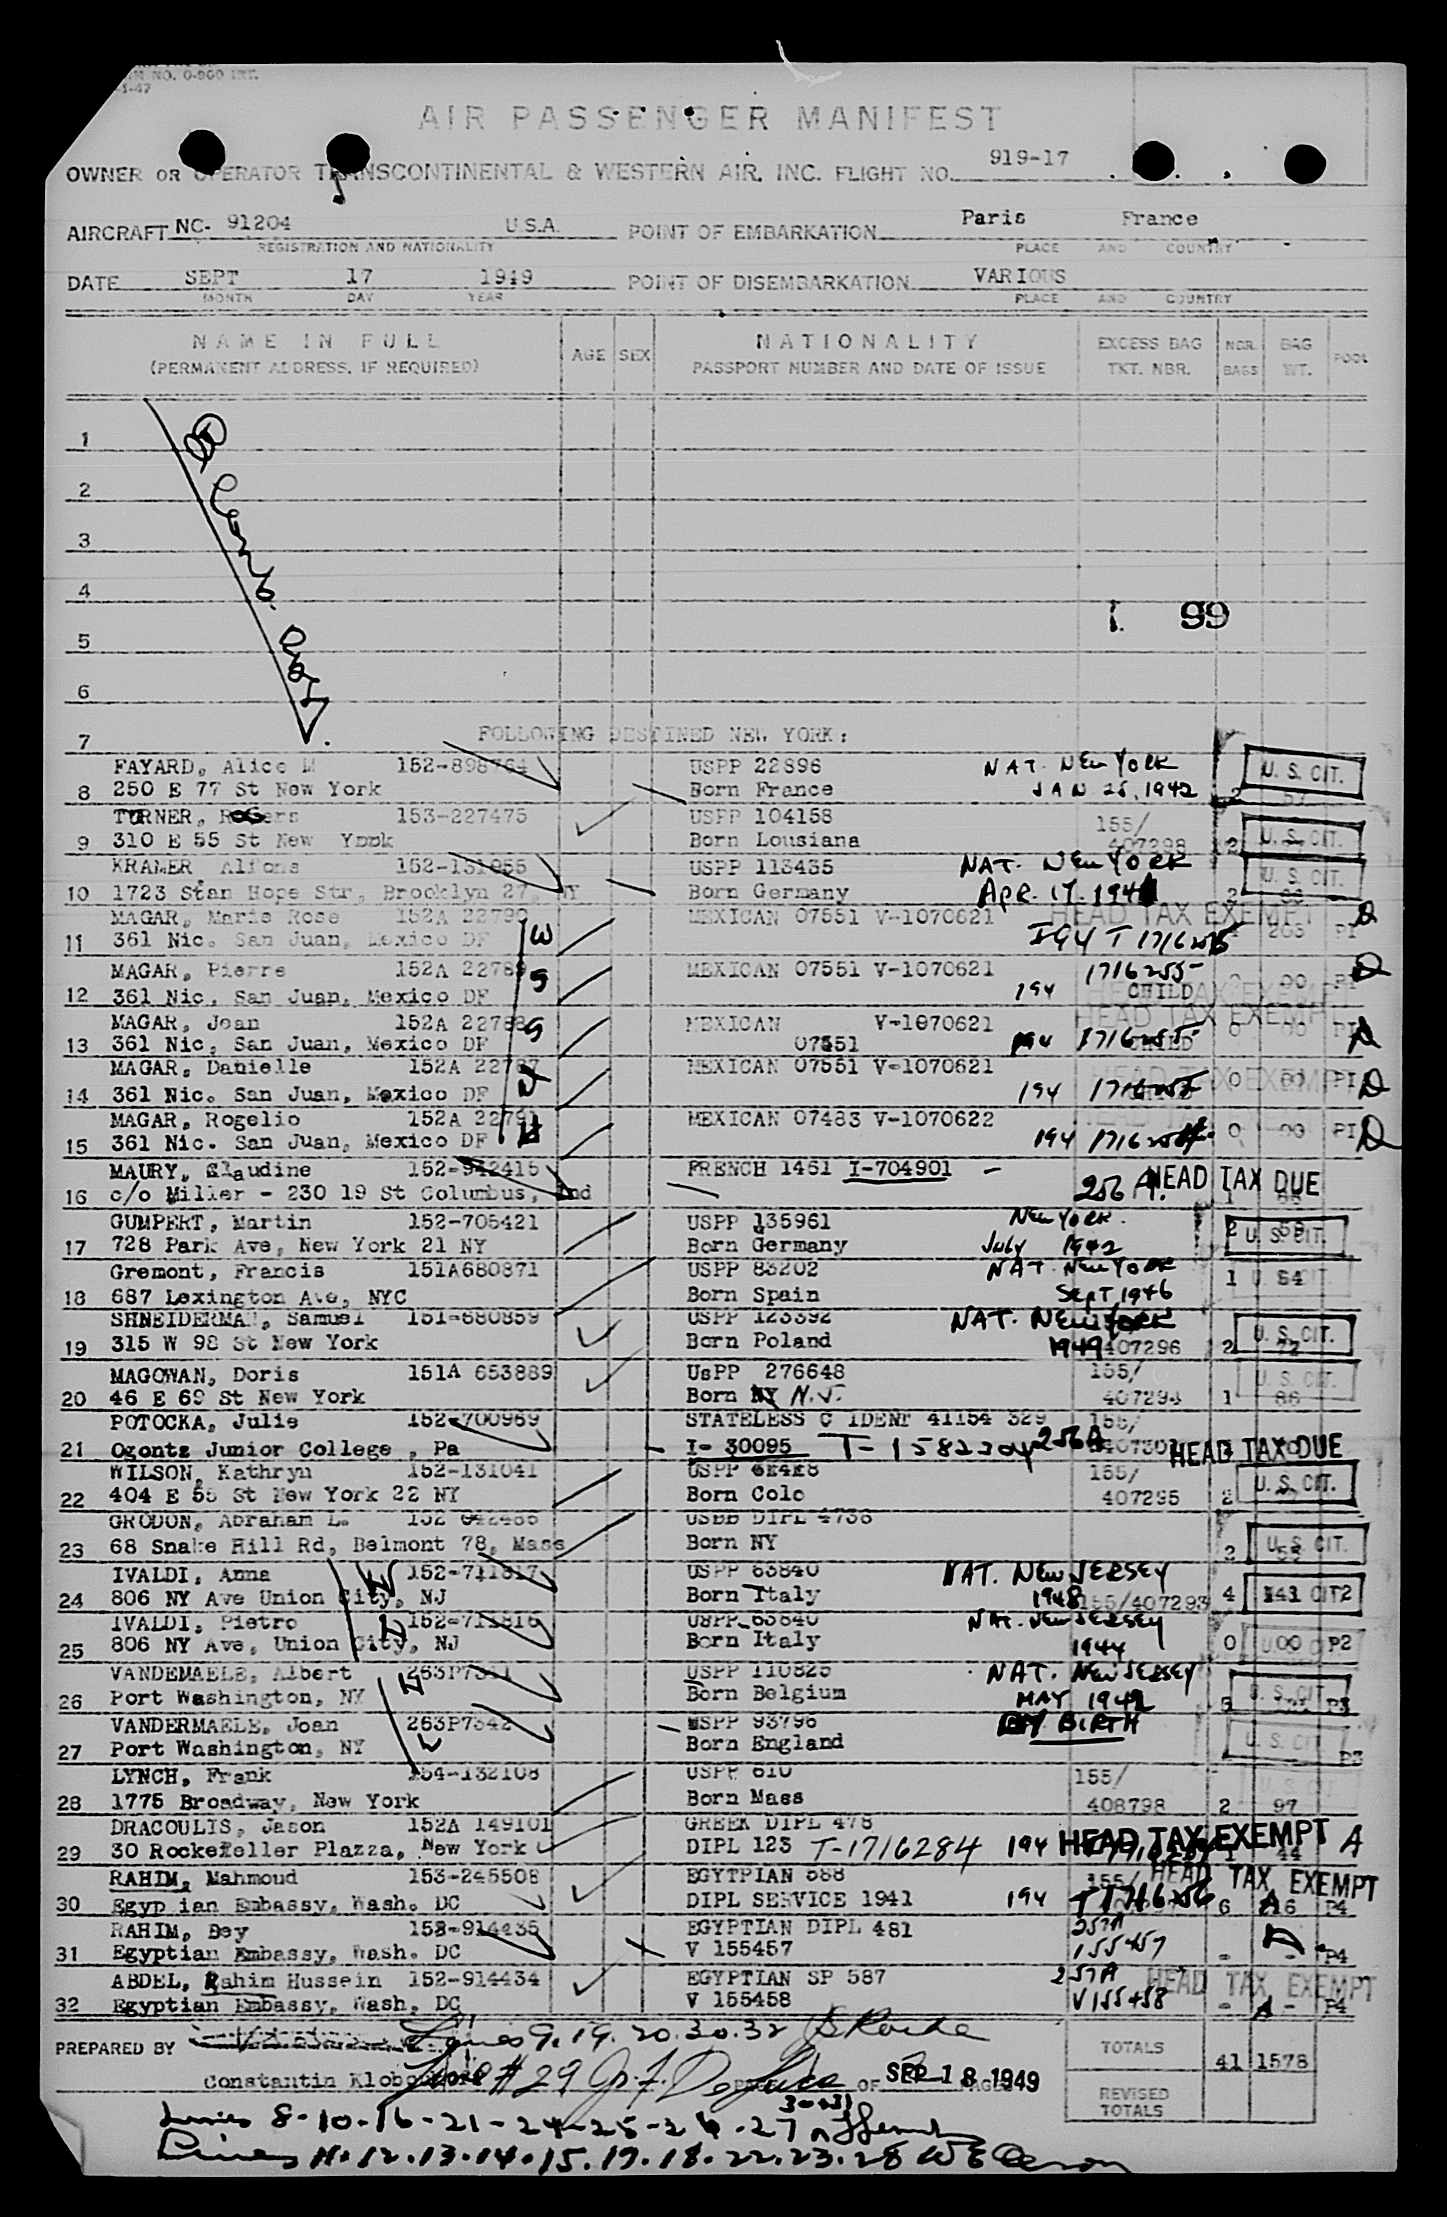 NO. 0-900 INT.
-1-47
AIR PASSENGER MANIFEST
OWNER OR OPERATOR TRANSCONTINENTAL & WESTERN AIR, INC. FLIGHT NO. 919-17
AIRCRAFT NC- 91204 U.S.A. POINT OF EMBARKATION Paris France
REGISTRATION AND NATIONALITY PLACE AND COUNTRY
DATE SEPT 17 1949 POINT OF DISEMBARKATION VARIOUS
MONTH DAY YEAR PLACE AND COUNTRY
NAME IN FULL AGE SEX NATIONALITY EXCESS BAG NBR. BAG POOL
(PERMANENT ADDRESS, IF REQUIRED) PASSPORT NUMBER AND DATE OF ISSUE TKT. NBR. BAGS WT.
1
2
3
4
5
1 99
6
7 FOLLOWING DESTINED NEW YORK:
FAYARD, Alice M 152-898764 USPP 22896 NAT. NEW YORK U. S. CIT.
8 250 E 77 St New York Born France JAN 25, 1942 2 57
TURNER, Rogers 153-227475 USPP 104158 155/
9 310 E 55 St New York Born Lousiana 407298 2 U. S. CIT.
KRAMER, Alfons 152-131055 USPP 113435 NAT. NEW YORK U. S. CIT.
10 1723 Stan Hope Str, Brooklyn 27 NY Born Germany Apr. 17. 1941 2 66
MAGAR, Marie Rose 152A 22790 MEXICAN 07551 V-1070621 HEAD TAX EXEMPT D
11 361 Nic. San Juan, Mexico DF W 194 T 1716255 PI
MAGAR, Pierre 152A 22789 S MEXICAN 07551 V-1070621 1716255 D
12 361 Nic. San Juan, Mexico DF 194 CHILD HEAD TAX EXEMPT 0 00 PI
MAGAR, Jean 152A 22788 S MEXICAN V-1070621 HEAD TAX EXEMPT
13 361 Nic, San Juan, Mexico DF 07551 194 1716255 0 00 PI D
MAGAR, Danielle 152A 22787 MEXICAN 07551 V-1070621 HEAD TAX EXEMPT
14 361 Nic. San Juan, Mexico DF 194 1716255 0 00 PI D
MAGAR, Rogelio 152A 22791 MEXICAN 07483 V-1070622
15 361 Nic. San Juan, Mexico DF H 194 0 00 PI D
MAURY, Claudine 152-942415 FRENCH 1461 I-704901 - HEAD TAX DUE
16 c/o Miller - 230 19 St Columbus, Ind 256 A. 1
GUMPERT, Martin 152-705421 USPP 135961 New York.
17 728 Park Ave, New York 21 NY Born Germany July 1942 2 58 U. S. CIT.
Gremont, Francis 151A680871 USPP 83202 NAT. New York
18 687 Lexington Ave, NYC Born Spain Sept 1946 1 84 U. S. CIT.
SHNEIDERMAN, Samuel 151-680859 USPP 123392 NAT. NEW YORK U. S. CIT.
19 315 W 98 St New York Born Poland 1949 407296 2 72
MAGOWAN, Doris 151A 653889 UsPP 276648 155/ U. S. CIT.
20 46 E 69 St New York Born NY N.J. 407294 1 86
POTOCKA, Julie 152-700969 STATELESS C IDENT 41154 329 155/
21 Ogontz Junior College , Pa I- 30095 T-1582304 256A HEAD TAX DUE
WILSON, Kathryn 152-131041 USPP 155/
22 404 E 55 St New York 22 NY Born Colo 407295 2 U. S. CIT.
GRODON, Abraham L. 152 942485 DIPL 4736
23 68 Snake Hill Rd, Belmont 78, Mass Born NY 2 55 U. S. CIT.
IVALDI, Anna 152-711817 W USPP 63840 NAT. NEW JERSEY
24 806 NY Ave Union City, NJ Born Italy 1948 155/407293 4 143 CIT2
IVALDI, Pietro 152-711816 H USPP 63840 NAT. NEW JERSEY
25 806 NY Ave, Union City, NJ Born Italy 1944 0 00 P2
VANDEMAELE, Albert 263P7341 H USPP 110825 NAT. NEW JERSEY
26 Port Washington, NY Born Belgium MAY 1942 3 U. S. CIT. P3
VANDERMAELE, Joan 263P7342 USPP 93796 BY BIRTH
27 Port Washington, NY W Born England U. S. CIT. P3
LYNCH, Frank 154-132108 USPP 610 155/ U. S. CIT.
28 1775 Broadway, New York Born Mass 408798 2 97
DRACOULIS, Jason 152A 149101 GREEK DIPL 478
29 30 Rockefeller Plazza, New York DIPL 123 T-1716284 194 HEAD TAX EXEMPT A 1 44
RAHIM, Mahmoud 153-245508 EGYTPIAN 588 155/ HEAD TAX EXEMPT
30 Egyp ian Embassy, Wash. DC DIPL SERVICE 1941 194 T1716256 6 A P4
RAHIM, Bey 153-914435 EGYPTIAN DIPL 481 257A
31 Egyptian Embassy, Wash. DC V 155457 155457 - A P4
ABDEL, Rahim Hussein 152-914434 EGYPTIAN SP 587 257A HEAD TAX EXEMPT
32 Egyptian Embassy, Wash, DC V 155458 V155458 - A - P4
PREPARED BY Lines 9. 19. 20. 30. 32 TOTALS 41 1578
Constantin Line #29 OF SEP 18 1949
REVISED TOTALS
30+31
Lines 8-10-16-21-24-25-26-27
Lines 11.12.13.14.15.17.18.22.23.28